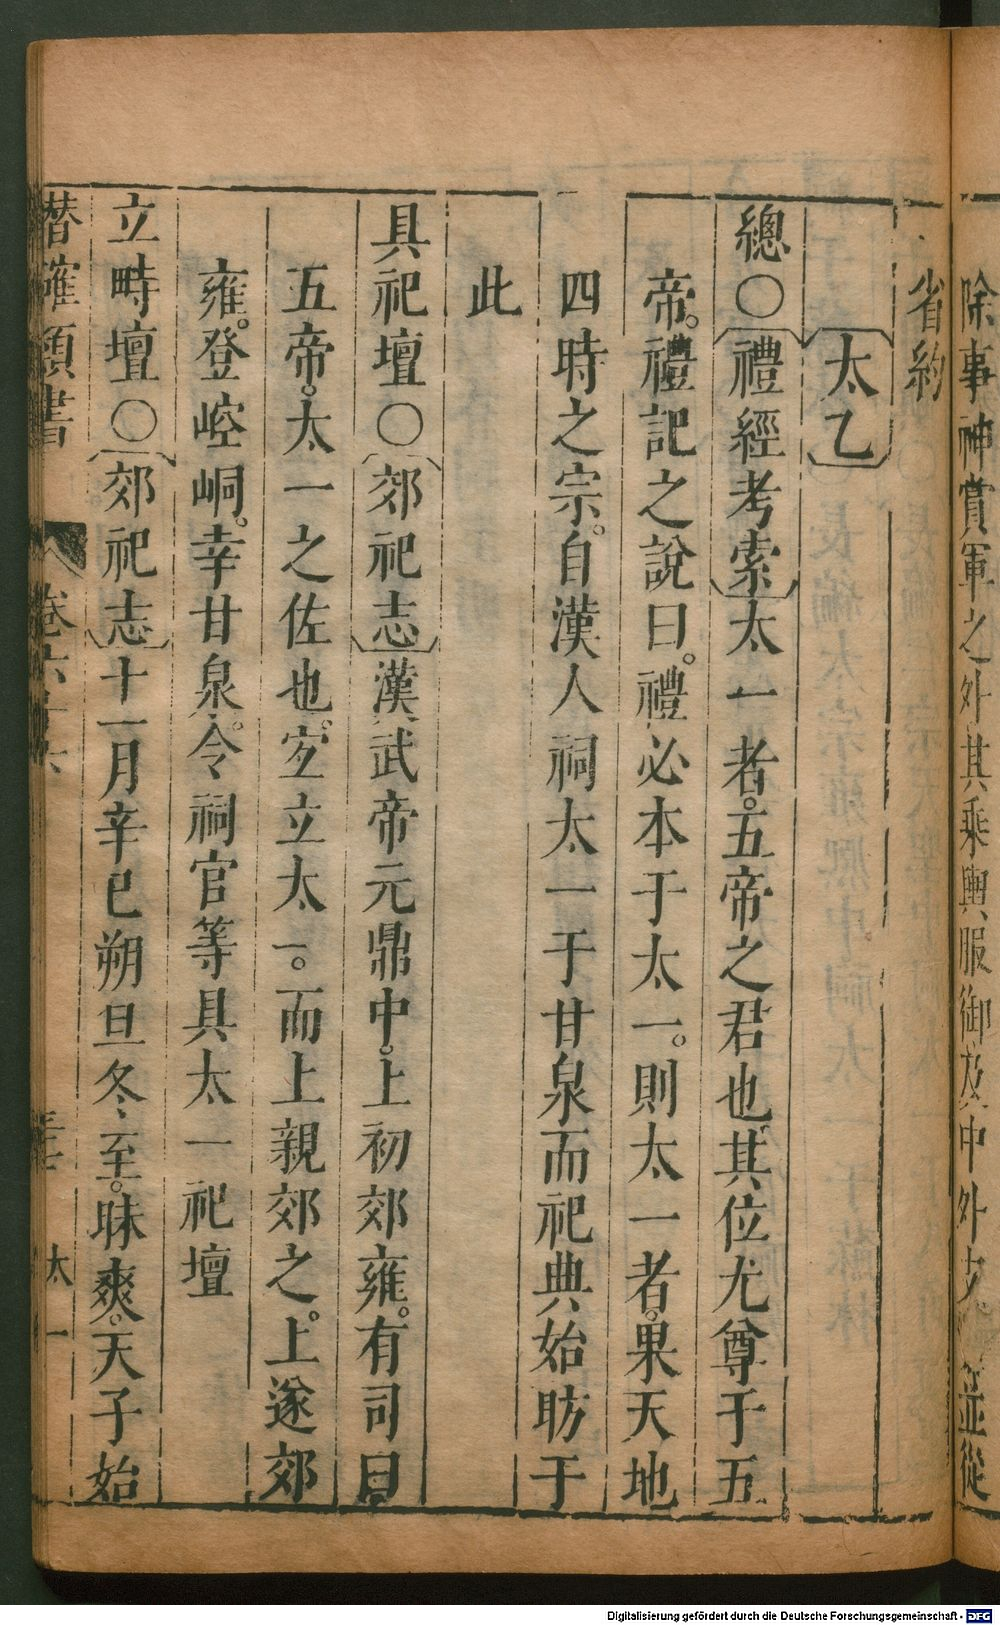 除事神賞軍之外其乘輿服御及中外支並從
省約
太乙
總○禮經考索太一者。五帝之君也其位尤尊于五
帝。禮記之說曰。禮必本于太一。則太一者。果天地
四時之宗。自漢人祠太一于甘泉而祀典始昉于
此
具祀壇○郊祀志漢武帝元鼎中。上初郊雍。有司曰
五帝。太一之佐也。宜立太一。而上親郊之。上遂郊
雍。登崆峒。幸甘泉。令祠官等具太一祀壇
立畤壇○郊祀志十一月辛巳朔旦冬至。昧爽。天子始
潛確類書
卷六十六
太一
Digitalisierung gefördert durch die Deutsche Forschungsgemeinschaft - DFG